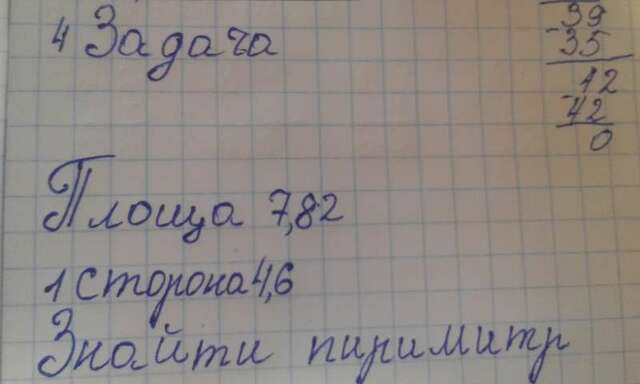 4 Задача
Площа 7,82
1 сторона 4,6
Знайти пириметр
39
-35
42
-42
0